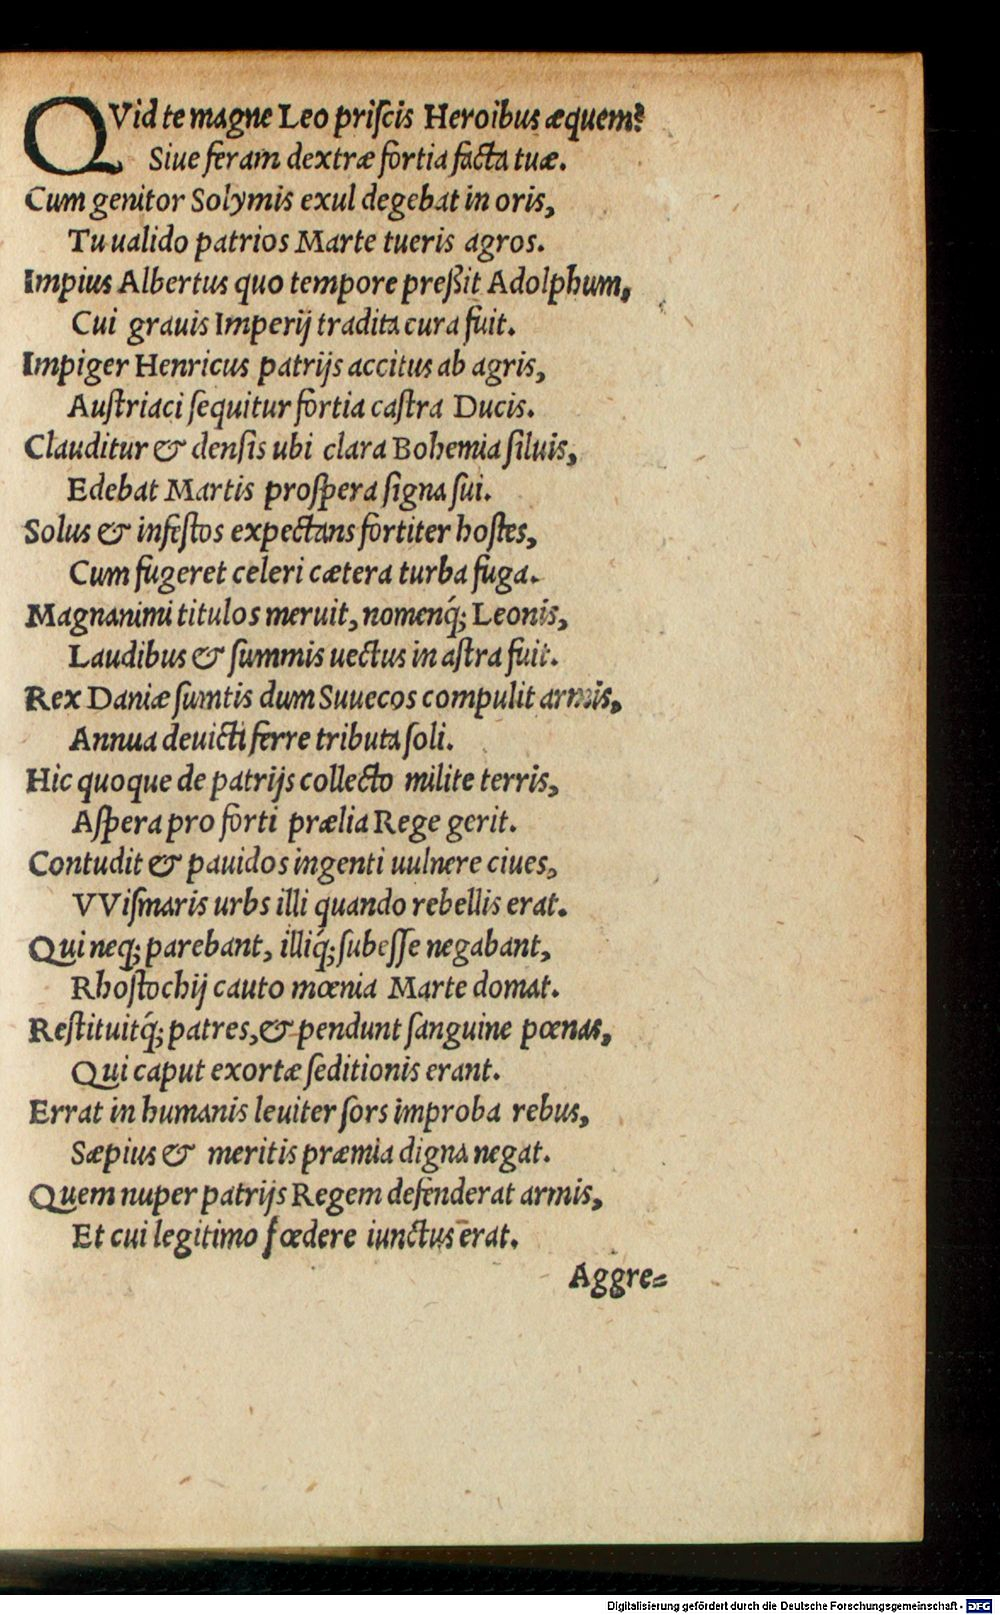 QVid te magne Leo priſcis Heroibus æquem?
Siue feram dextræ fortia facta tuæ.
Cum genitor Solymis exul degebat in oris,
Tu ualido patrios Marte tueris agros.
Impius Albertus quo tempore preßit Adolphum,
Cui grauis Imperij tradita cura fuit.
Impiger Henricus patrijs accitus ab agris,
Auſtriaci ſequitur fortia caſtra Ducis.
Clauditur & denſis ubi clara Bohemia ſiluis,
Edebat Martis proſpera ſigna ſui.
Solus & infeſtos expectans fortiter hoſtes,
Cum fugeret celeri cætera turba fuga.
Magnanimi titulos meruit, nomenq́; Leonis,
Laudibus & ſummis uectus in aſtra fuit.
Rex Daniæ ſumtis dum Suuecos compulit armis,
Annua deuicti ferre tributa ſoli.
Hic quoque de patrijs collecto milite terris,
Aſpera pro forti prælia Rege gerit.
Contudit & pauidos ingenti uulnere ciues,
VViſmaris urbs illi quando rebellis erat.
Qui neq; parebant, illiq́; ſubeſſe negabant,
Rhoſtochij cauto mœnia Marte domat.
Reſtituitq́; patres, & pendunt ſanguine pœnas,
Qui caput exortæ ſeditionis erant.
Errat in humanis leuiter ſors improba rebus,
Sæpius & meritis præmia digna negat.
Quem nuper patrijs Regem defenderat armis,
Et cui legitimo fœdere iunctus erat.
Aggre=
Digitalisierung gefördert durch die Deutsche Forschungsgemeinschaft - DFG